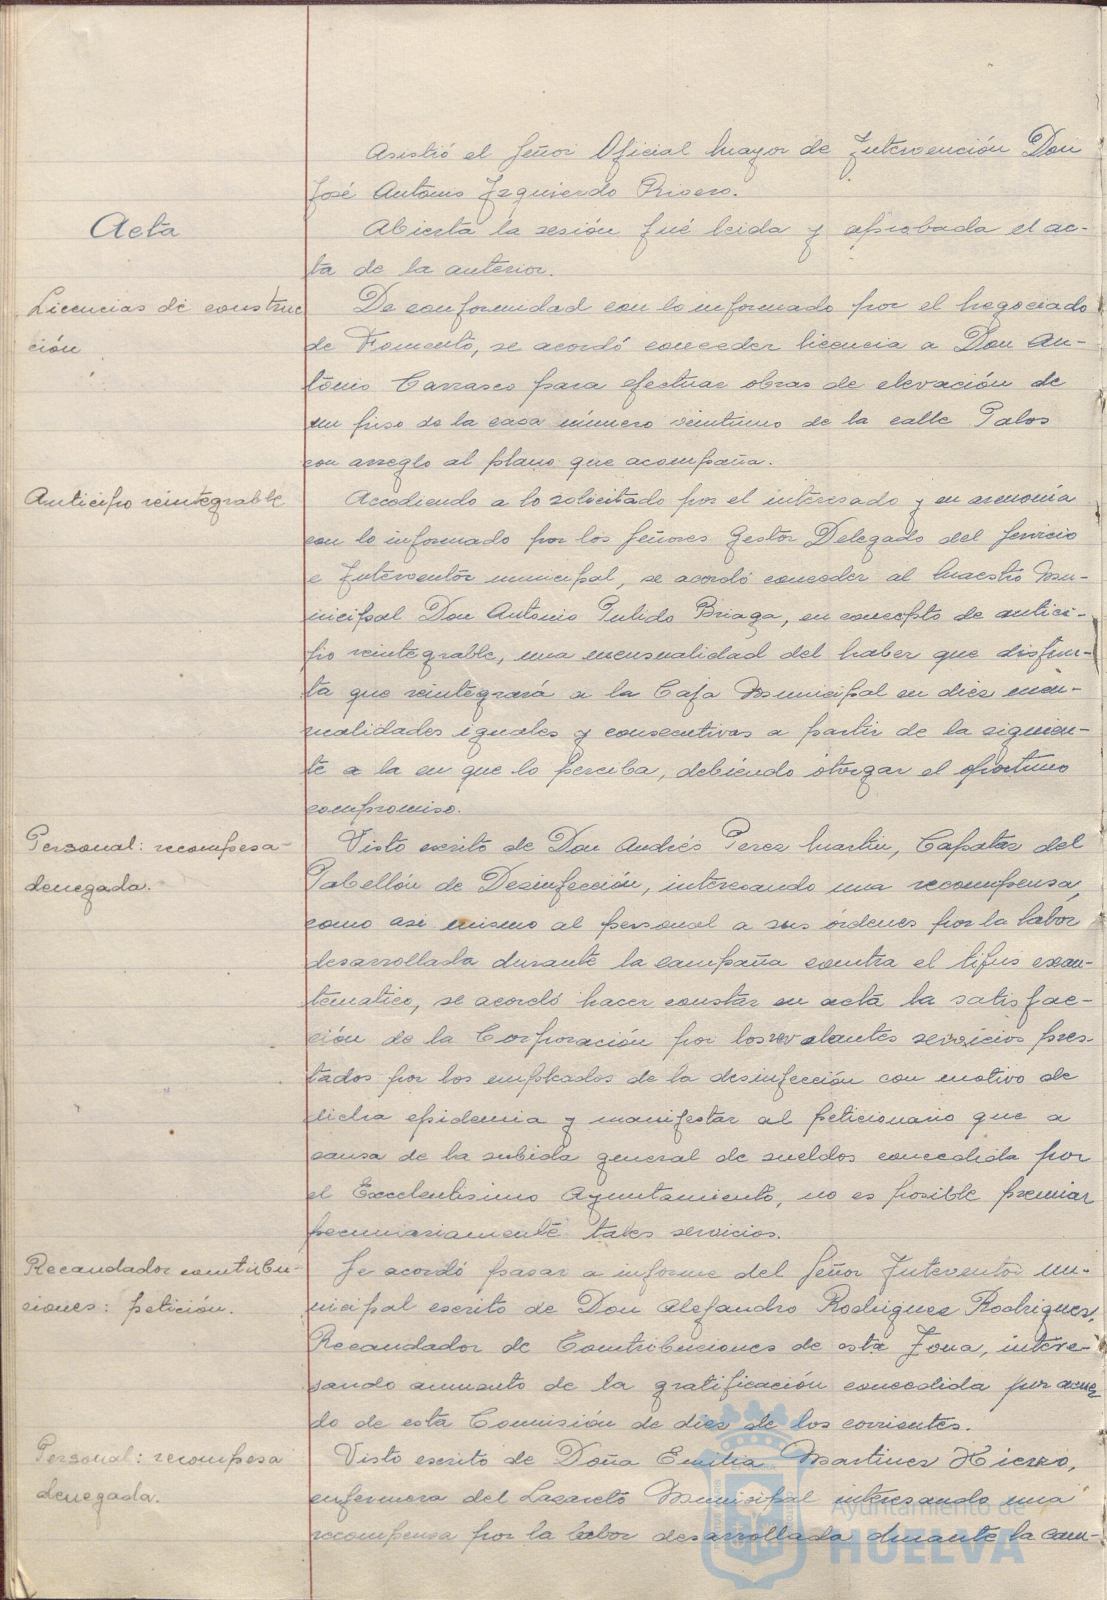 Asistió el Señor Oficial Mayor de Intervención Don
José Antonio Izquierdo Rivero.
Acta
Abierta la sesión fué leida y aprobada el ac-
ta de la anterior.
Licencias de construc
ción
De conformidad con lo informado por el Negociado
de Fomento, se acordó conceder licencia a Don An-
tonio Carrasco para efectuar obras de elevación de
un piso de la casa número veintiuno de la calle Palos
con arreglo al plano que acompaña.
Anticipo reintegrable
Accediendo a lo solicitado por el interesado y en armonía
con lo informado por los Señores Gestor Delegado del Servicio
e Interventor municipal, se acordó conceder al Maestro Mu-
nicipal Don Antonio Pulido Briaga, en concepto de antici-
po reintegrable, una mensualidad del haber que disfru-
ta que reintegrará a la Caja Municipal en diez men-
sualidades iguales y consecutivas a partir de la siguien-
te a la en que lo perciba, debiendo otorgar el oportuno
compromiso.
Personal: recompesa
denegada.
Visto escrito de Don Andrés Perez Martin, Capataz del
Pabellón de Desinfección, interesando una recompensa,
como asi mismo al personal a sus órdenes por la labor
desarrollada durante la campaña contra el tifus exan-
tematico, se acordó hacer constar en acta la satisfac-
ción de la Corporación por los relevantes servicios pres
tados por los empleados de la desinfección con motivo de
dicha epidemia y manifestar al peticionario que a
causa de la subida general de sueldos concedida por
el Excelentisimo Ayuntamiento, no es posible premiar
pecuniariamente tales servicios.
Recaudador contribu-
ciones: petición.
Se acordó pasar a informe del Señor Interventor mu-
nicipal escrito de Don Alejandro Rodriguez Rodriguez,
Recaudador de Contribuciones de esta Zona, intere-
sando aumento de la gratificación concedida por acuer
do de esta Comisión de diez de los corrientes.
Personal: recompesa
denegada.
Visto escrito de Doña Emilia Martinez Hierro,
enfermera del Lazareto Municipal interesando una
recompensa por la labor desarrollada durante la cam-
Ayuntamiento de
HUELVA